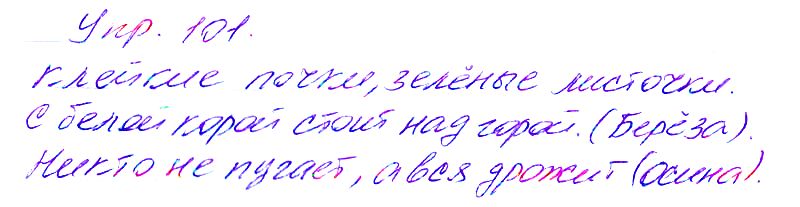 Упр. 101.
Клейкие почки, зелёные листочки.
С белой корой стоит над горой. (Берёза).
Никто не пугает, а вся дрожит (осина).